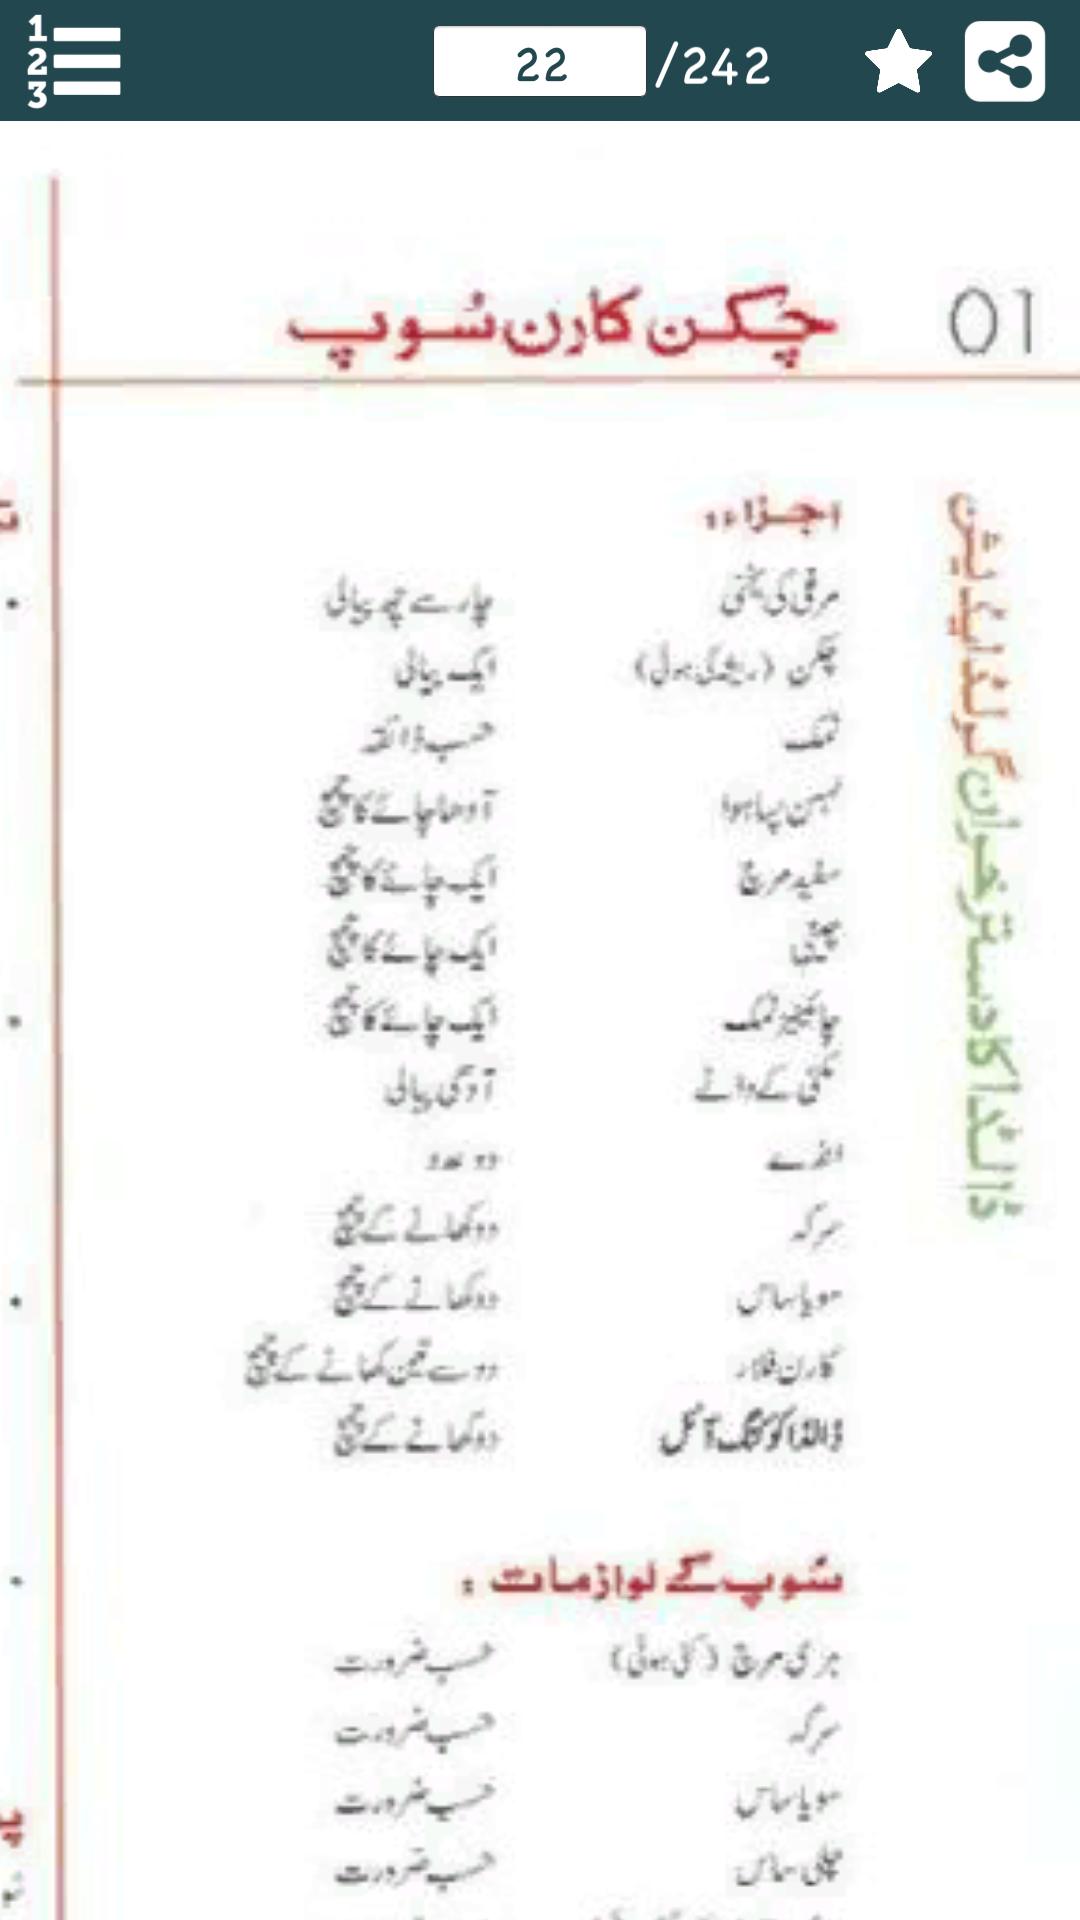 22 /242
01 چکن کارن سُوپ
ڈالڈا کا دسترخوان گولڈ ایڈیشن
اجزاء:
مرغی کی یخنی چار سے چھ پیالی
چکن (ریشہ کی ہوئی) ایک پیالی
نمک حسب ذائقہ
لہسن پسا ہوا آدھا چائے کا چمچ
سفید مرچ ایک چائے کا چمچ
چینی ایک چائے کا چمچ
چائینیز نمک ایک چائے کا چمچ
مکئی کے دانے آدھی پیالی
انڈے دو عدد
سرکہ دو کھانے کے چمچ
سویا ساس دو کھانے کے چمچ
کارن فلار دو سے تین کھانے کے چمچ
ڈالڈا کوکنگ آئل دو کھانے کے چمچ
سُوپ کے لوازمات :
ہری مرچ (کٹی ہوئی) حسب ضرورت
سرکہ حسب ضرورت
سویا ساس حسب ضرورت
چلی ساس حسب ضرورت